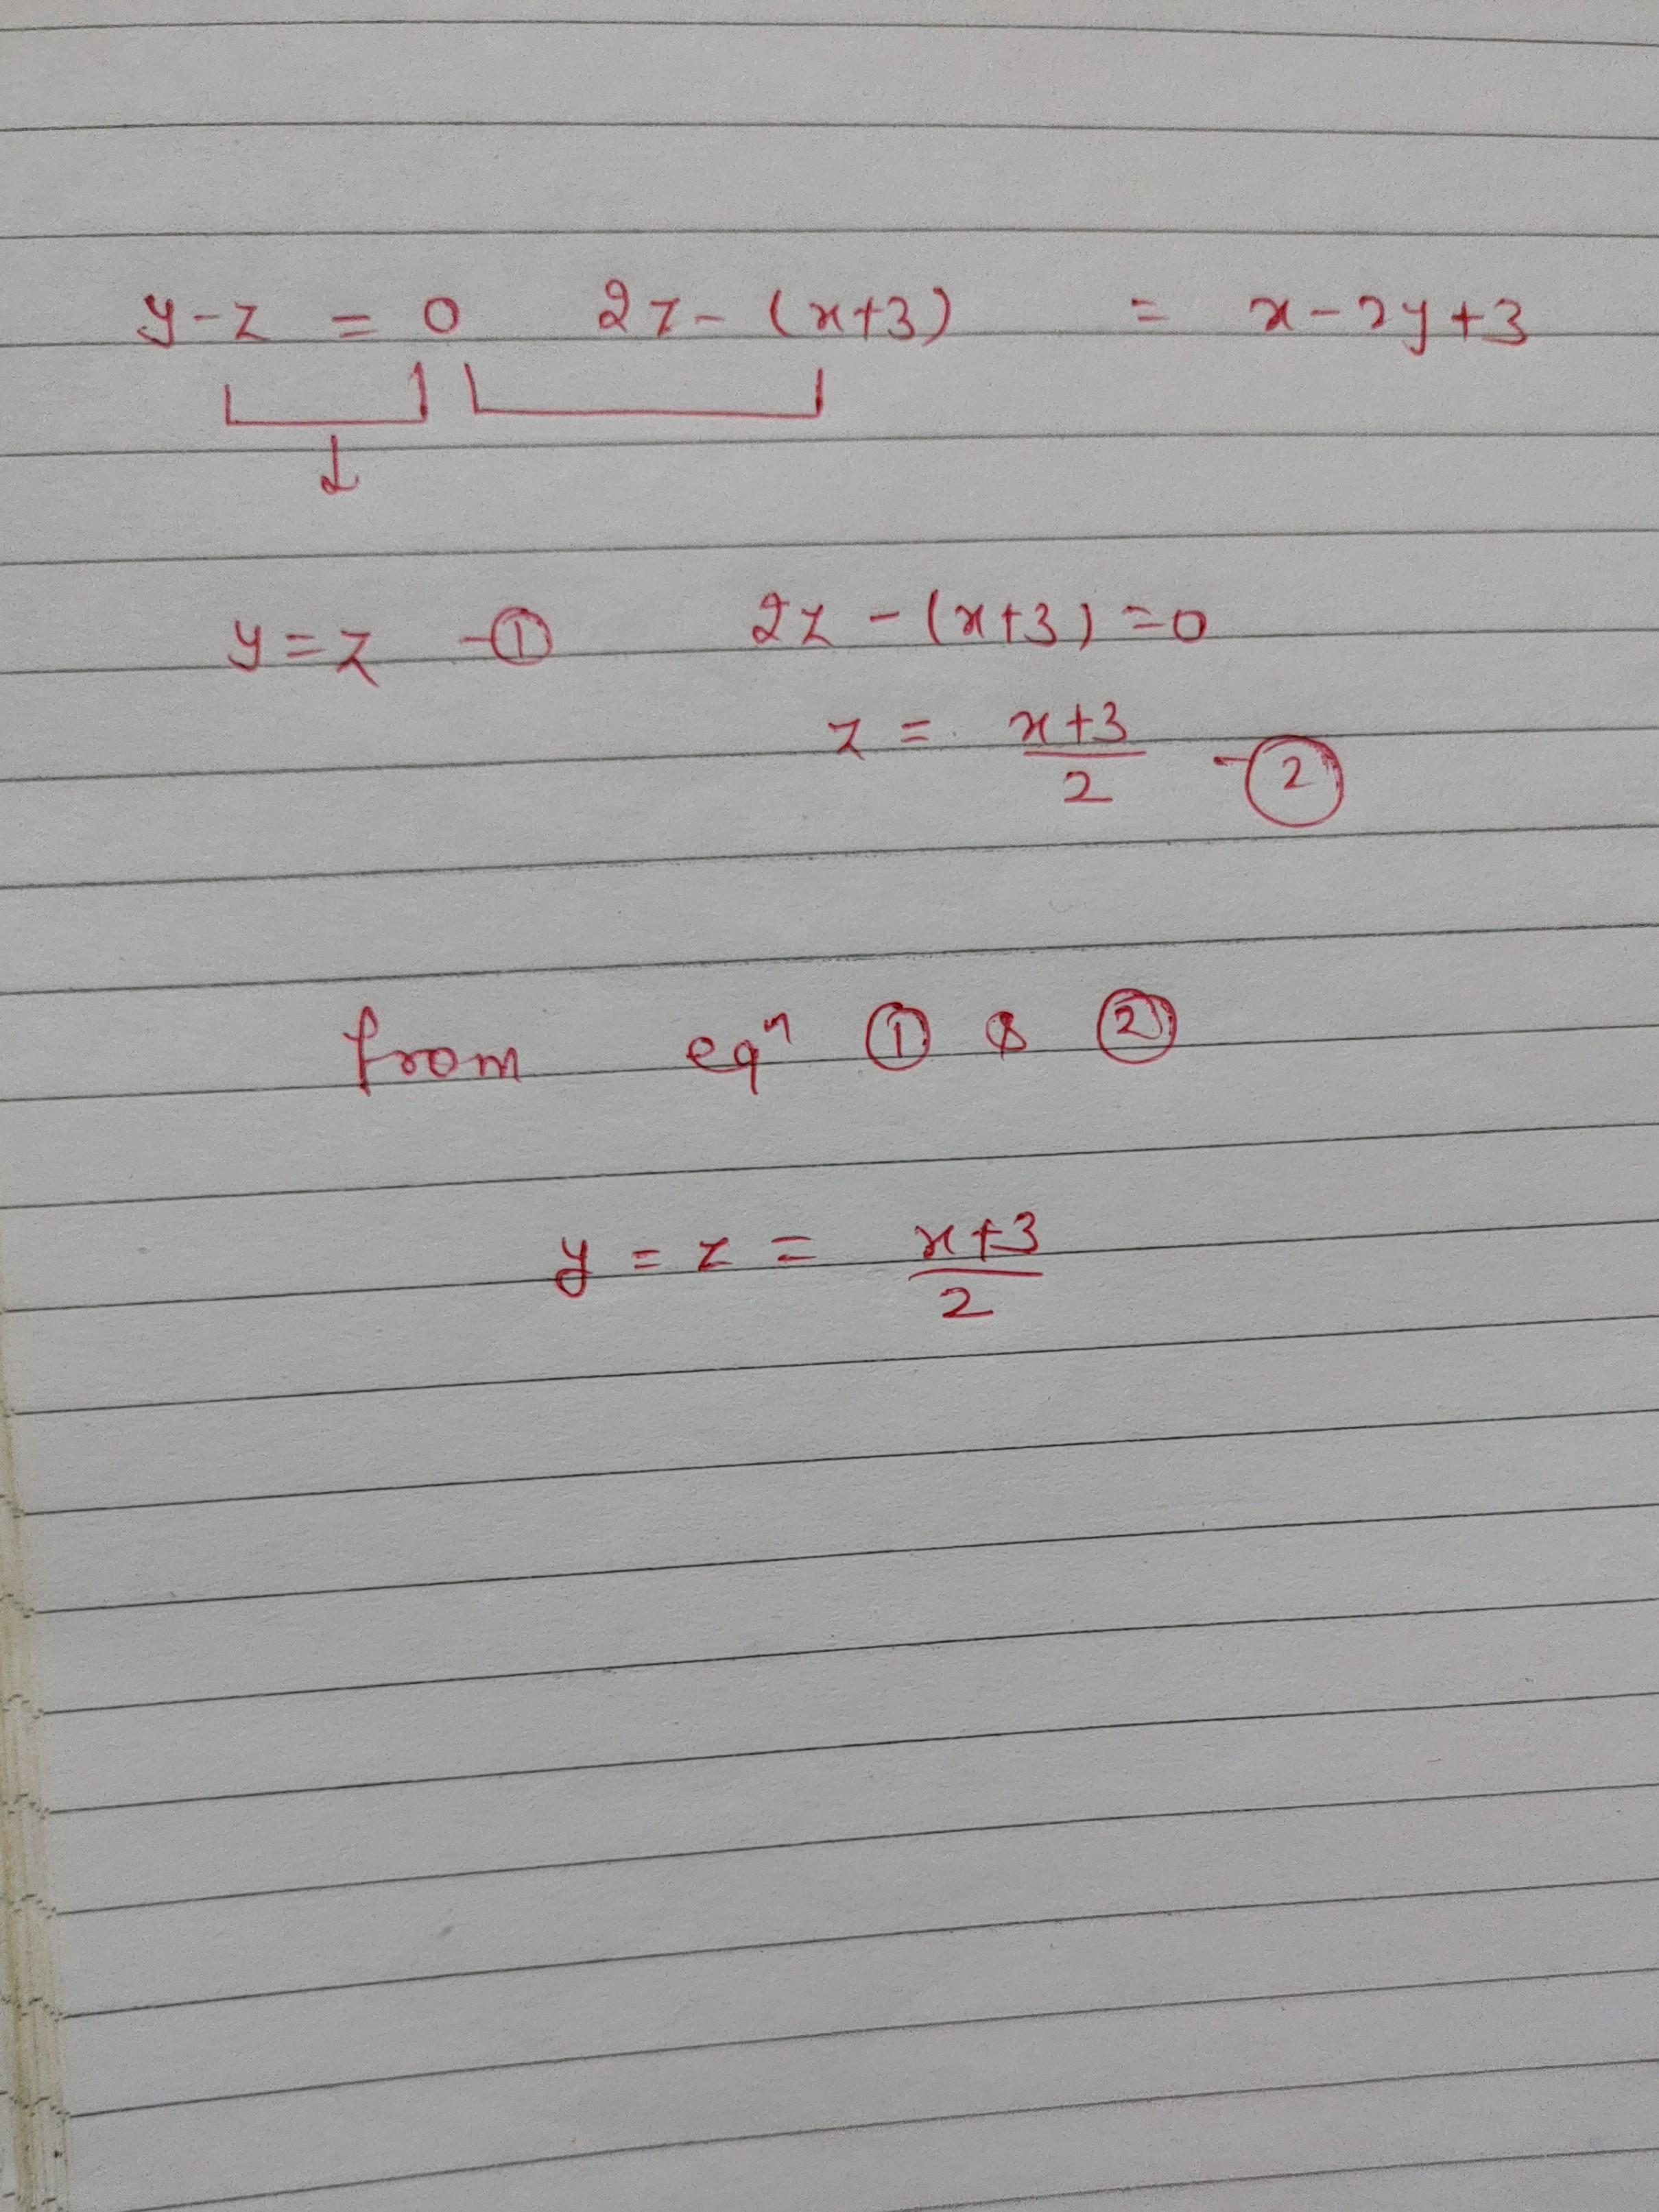 y-z = 0 2z- (x+3) = x-2y+3
y=z -① 2z -(x+3)=0
z = x+3/2 -②
from eqⁿ ① & ②
y = z = x+3/2